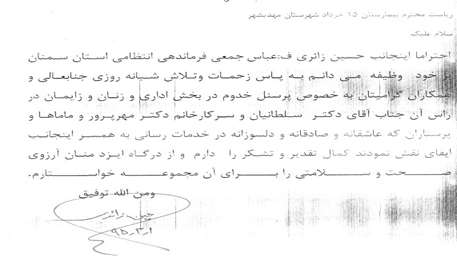 ریاست محترم بیمارستان ۱۵ خرداد شهرستان مهدیشهر
سلام علیک
احتراما اینجانب حسین زائری ف:عباس جمعی فرماندهی انتظامی استان سمنان
بر خود وظیفه می دانم به پاس زحمات وتلاش شبانه روزی جنابعالی و
همکاران گرامیتان به خصوص پرسنل خدوم در بخش اداری و زنان و زایمان در
راس آن جناب آقای دکتر سلطانیان و سرکارخانم دکتر مهرپرور و ماماها و
پرستاران که عاشقانه و صادقانه و دلسوزانه در خدمات رسانی به همسر اینجانب
ایفای نقش نمودند کمال تقدیر و تشکر را دارم و از درگاه ایزد منان آرزوی
صحت و سلامتی را برای آن مجموعه خواستارم.
ومن الله توفیق
حسین زائری
۹۵٫۳٫۱